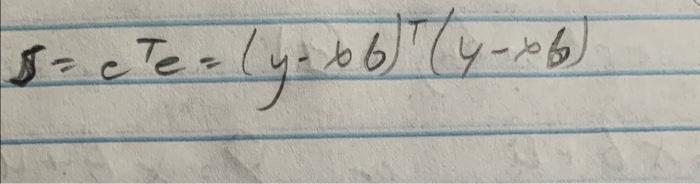 S = eᵀe = (y - xb)ᵀ(y - xb)